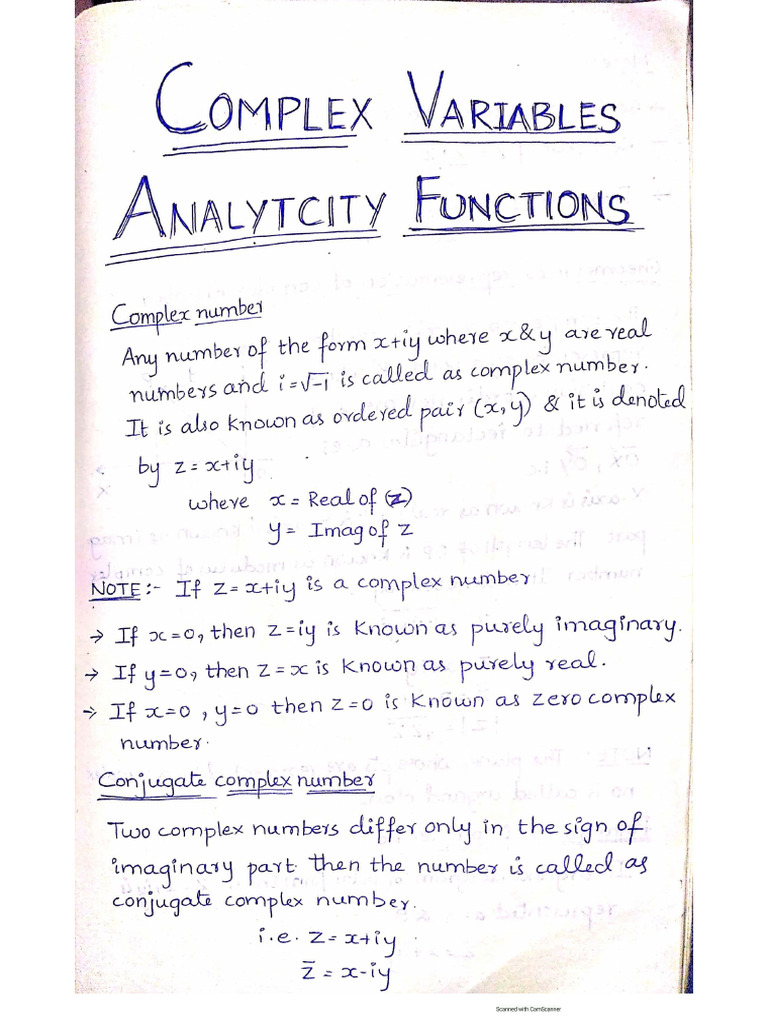 COMPLEX VARIABLES
ANALYTCITY FUNCTIONS
Complex number
Any number of the form x+iy where x & y are real
numbers and i=√-1 is called as complex number.
It is also known as ordered pair (x,y) & it is denoted
by z=x+iy.
where x = Real of (z)
y = Imag of z
NOTE :- If z=x+iy is a complex number.
→ If x=0, then z=iy is known as purely imaginary.
→ If y=0, then z=x is known as purely real.
→ If x=0, y=0 then z=0 is known as zero complex
number.
Conjugate complex number
Two complex numbers differ only in the sign of
imaginary part then the number is called as
conjugate complex number.
i.e. z = x+iy
z̄ = x-iy
Scanned with CamScanner